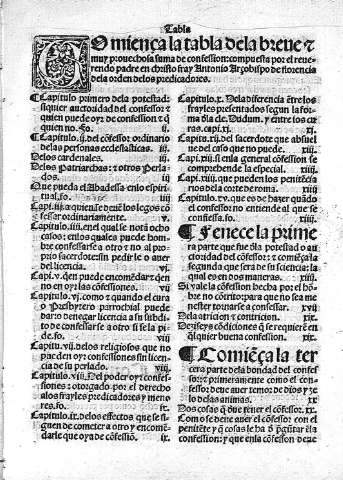 Tabla
Comiença la tabla dela breue ⁊
muy prouechosa suma de confession: compuesta por el reue-
rendo padre en christo fray Antonio Arçobispo de florencia
dela orden delos predicadores.
¶ Capitulo primero dela potestad:
si quier auctoridad del confessor ⁊
quien puede oyr de confession ⁊ q̃
quien no. fo. ij.
Capitulo .ij. del cõfessor ordinario
de las personas ecclesiasticas. iij
Delos cardenales. iij.
Delos Patriarchas: ⁊ otros Perla
dos. iij
Que pueda el Abadessa enlo espiri
tual. fo. iiij
Capi. iij. a quien se deuẽ los legos cõ
fessar ordinariamente. v.
Capitulo .iiij. enel qual se nota ocho
casos: en los quales puede hom̃
confessarse a otro ⁊ no al pro
prio sacerdote: sin pedir le o auer
del licencia. vj
Capi. v. quen puede encomẽdar ⁊ den
no en oyr las cõfessiones. vij
Capitulo. vj. como ⁊ quando el cura
o Presbytero parrochial puede
dar o denegar licencia a su subdi-
to de confessarse a otro si se la pi-
de. fo. vij.
Capitulo. vij. delos religiosos que no
pueden oyr confessiones sin licen
cia de su perlado. viij
Capitulo. viij. Del poder oyr confes-
siones: otorgado por el derecho
alos frayles predicadores ⁊ meno
res. fo. ix
Capitulo ix. delos effectos que se si-
guen de cometer a otro y encomẽ-
darle que oyo de cõfessiõ. ix.
Capitulo. x. De la diferencia ẽtre los
frayles presentados segun la for-
ma dla cle. Dudum. y entre los cu
ras. capi. xj. xj.
Capitu. xij. del sacerdote que absuel
ue del caso que no puede. xij.
Cap. xiij. si enla general cõfession se
comprehende la especial. xiij.
Capi. xiiij. que pueden los penitẽcia
rios dela corte de roma. xiij
Capitulo. xv. que es de hazer quãdo
el confessor no entiende al que se
confiessa. fo. xiij.
¶ Fenece la prime
ra parte que fue dla potestad o au-
ctoridad del cõfessor: ⁊ comiẽça la
segunda que sera de su sciencia: la
qual es en dos maneras. xiiij.
Si vale la cõfession hecha por el hõ-
bre no cõtrito: para que no sea me
nester tornarse a confessar. xvj
Dela atricion ⁊ contricion. xv.
Dezises ⁊ cõdiciones q̃ se requierẽ en
qualquier buena confession. xx.
¶ Comiẽça la ter
cera parte dela bondad del confes
sor: ⁊ primeramente como el con-
fessor deue auer temor de dios ⁊ ze
lo delas animas. xx
Dos cosas q̃ deue tener el cõfessor. xx.
Como se deue auer el cõfessor con el
penitẽte ⁊ q̃ cosas le ha d̃ pgũtar ẽla
confession: y que enla cõfession deue